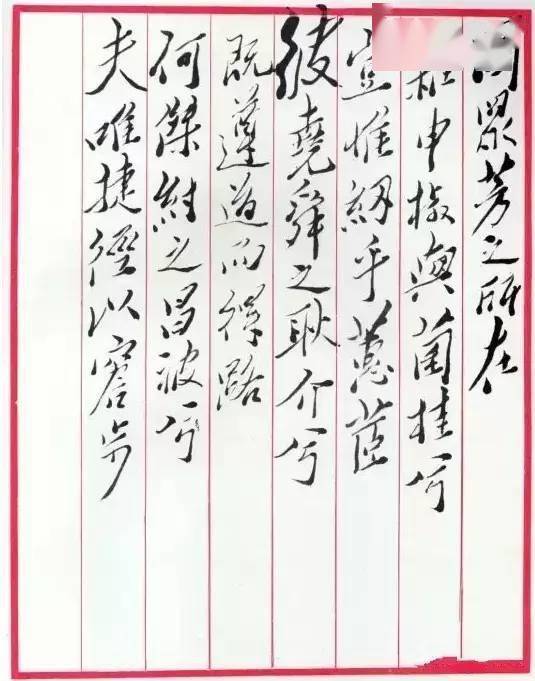 眾芳之所在
雜申椒與菌桂兮
豈惟紉乎蕙茝
彼堯舜之耿介兮
既遵道而得路
何桀紂之昌波兮
夫唯捷徑以窘步